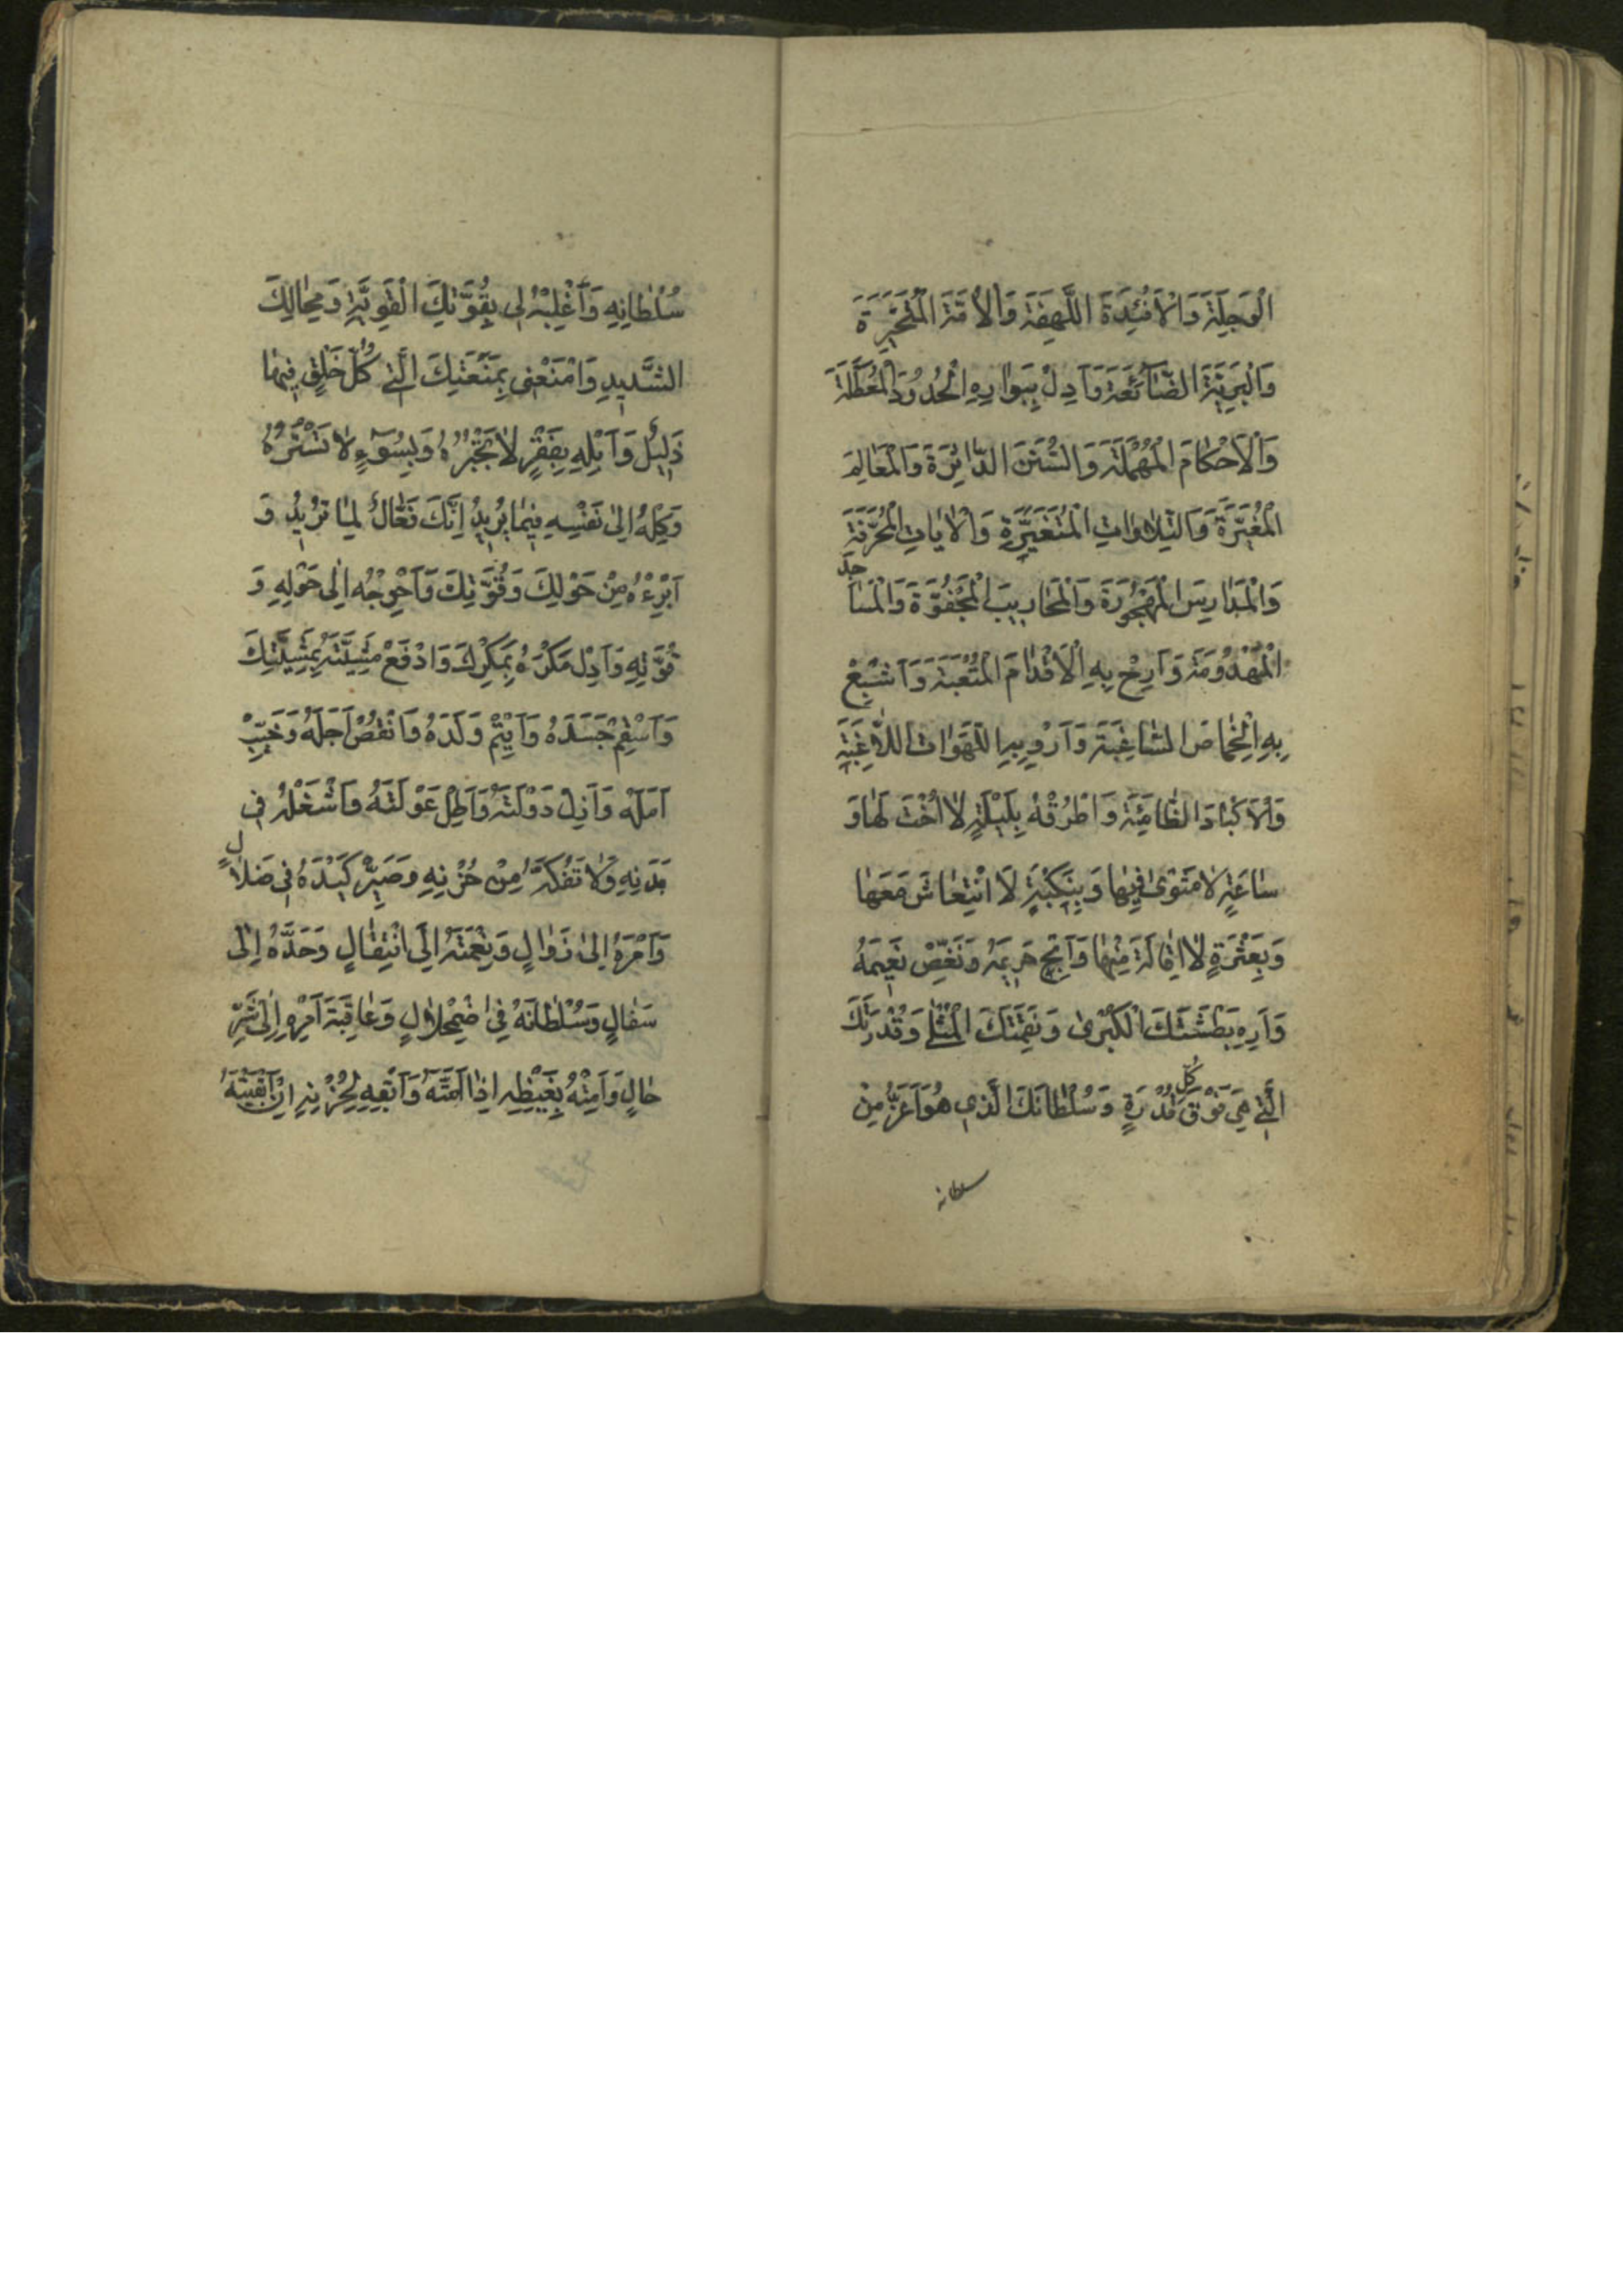 الْوَجِلَةَ وَالْاَفْئِدَةَ اللَّهِفَةَ وَالْاُمَّةَ الْمُتَحَيِّرَةَ
وَالْبَرِيَّةَ الضَّآئِعَةَ وَاَدِلْ بِبَوارِهِ الْحُدُودَ الْمُعَطَّلَةَ
وَالْاَحْكامَ الْمُهْمَلَةَ وَالسُّنَنَ الدّاثِرَةَ وَالْمَعالِمَ
الْمُغَيَّرَةَ وَالتِّلاواتِ الْمُتَغَيِّرَةِ وَالْاٰياتِ الْمُحَرَّفَةَ
وَالْمَدارِيسَ الْمَهْجُورَةَ وَالْمَحارِيبَ الْمَجْفُوَّةَ وَالْمَسَاجِدَ
الْمَهْدُومَةَ وَاَرِحْ بِهِ الْاَقْدامَ الْمُتْعَبَةَ وَاَشْبِعْ
بِهِ الْخِماصَ السّاغِبَةَ وَاَرْوِ بِهِ اللَّهَواتَ اللّاغِبَةَ
وَالْاَكْبادَ الظّامِئَةَ وَاطْرُقْهُ بِلَيْلَةٍ لا اُخْتَ لَها وَ
ساعَةٍ لا مَثْوىٰ فِيها وَبِنَكْبَةٍ لَا انْتِعاشَ مَعَها
وَبِعَثْرَةٍ لا اِقالَةَ مِنْها وَاَبِحْ حَرِيمَهُ وَنَغِّصْ نَعِيمَهُ
وَاَرِهِ بَطْشَتَكَ الْكُبْرىٰ وَنَقِمَتَكَ الْمُثْلىٰ وَقُدْرَتَكَ
الَّتِي هِيَ فَوْقَ كُلِّ قُدْرَةٍ وَسُلْطانَكَ الَّذِي هُوَ اَعَزُّ مِنْ
سلطانه
سُلْطانِهِ وَاَغْلِبْهُ لِي بِقُوَّتِكَ الْقَوِيَّةِ وَمِحالِكَ
الشَّدِيدِ وَامْنَعْنِي بِمَنْعَتِكَ الَّتِي كُلُّ خَلْقٍ فِيها
ذَلِيلٌ وَاَبْلِهِ بِفَقْرٍ لا تَجْبُرُهُ وَبِسُوٓءٍ لا تَسْتُرُهُ
وَكِلْهُ اِلىٰ نَفْسِهِ فِيما يُرِيدُ اِنَّكَ فَعّالٌ لِما تُرِيدُ وَ
اَبْرِءْهُ مِنْ حَوْلِكَ وَقُوَّتِكَ وَاَحْوِجْهُ اِلىٰ حَوْلِهِ وَ
قُوَّتِهِ وَاَدِلْ مَكْرَهُ بِمَكْرِكَ وَادْفَعْ مَشِيَّتَهُ بِمَشِيَّتِكَ
وَاَسْقِمْ جَسَدَهُ وَاَيْتِمْ وَلَدَهُ وَانْقُصْ اَجَلَهُ وَخَيِّبْ
اَمَلَهُ وَاَزِلْ دَوْلَتَهُ وَاَطِلْ عَوْلَتَهُ وَاشْغَلْهُ فِي
بَدَنِهِ وَلا تَفُكَّهُ مِنْ حُزْنِهِ وَصَيِّرْ كَيْدَهُ فِي ضَلالٍ
وَاَمْرَهُ اِلىٰ زَوالٍ وَنِعْمَتَهُ اِلَى انْتِقالٍ وَحَدَّهُ اِلىٰ
سَفالٍ وَسُلْطانَهُ فِي اضْمِحْلالٍ وَعاقِبَةَ اَمْرِهِ اِلىٰ شَرِّ
حالٍ وَاَمِتْهُ بِغَيْظِهِ اِذا اَمَتَّهُ وَاَبْقِهِ لِحُزْنِهِ اِنْ اَبْقَيْتَهُ